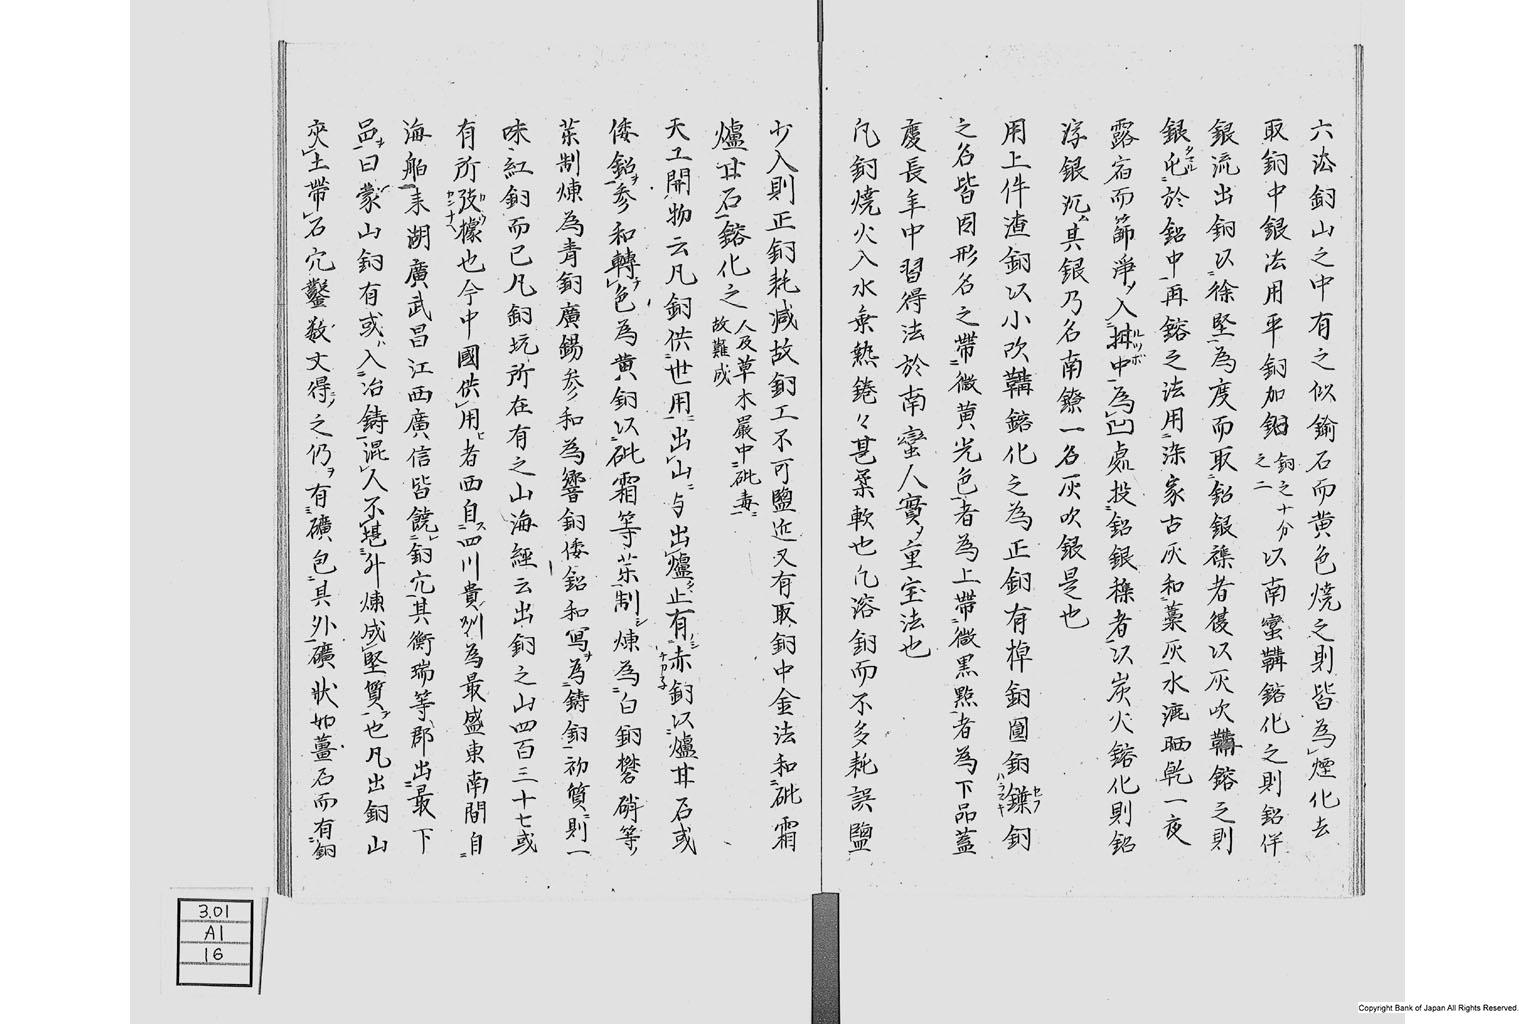 六法銅山之中有之似鍮石而黄色焼之則皆為煙化去
取銅中銀法用平銅加鉛銅之十分之二以南蛮鞴鎔化之則鉛伴
銀流出銅以徐堅為度而取鉛銀襍者復以灰吹鞴鎔之則
銀
於鉛中再鎔之法用染家古灰和藁灰水漉晒乾一夜
露宿而篩浄入坩中為凹處投鉛銀襍者以炭火鎔化則鉛
浮銀沉其銀乃名南鐐一名灰吹銀是也
用上件渣銅以小吹鞴鎔化之為正銅有棹銅圓銅鏶銅
之名皆因形名之帯微黄光色者為上帯微黒點者為下品蓋
慶長年中習得法於南蛮人實重宝法也
凡銅焼火入水乗熱錈々甚柔軟也凡溶銅而不多耗誤鹽
少入則正銅耗減故銅工不可鹽近又有取銅中金法和砒霜
爐甘石鎔化之人及草木嚴中砒毒故難成
天工開物云凡銅供世用出山与出爐止有赤銅以爐甘石或
倭鉛参和轉色為黄銅以砒霜等薬制煉為白銅礬硝等
薬制煉為青銅廣錫参和為響銅倭鉛和写為鋳銅初質則一
味紅銅而已凡銅坑所在有之山海經云出銅之山四百三十七或
有所攷據也今中國供用者西自四川貴州為最盛東南間自
海舶来湖廣武昌江西廣信皆饒銅穴其衡瑞等郡出最下
品曰蒙山銅有或入冶鋳混入不堪升煉成堅質也凡出銅山
夾土帯石穴鑿数丈得之仍有礦包其外礦状如薑石而有銅
3.01
A1
16
Copyright Bank of Japan All Rights Reserved.